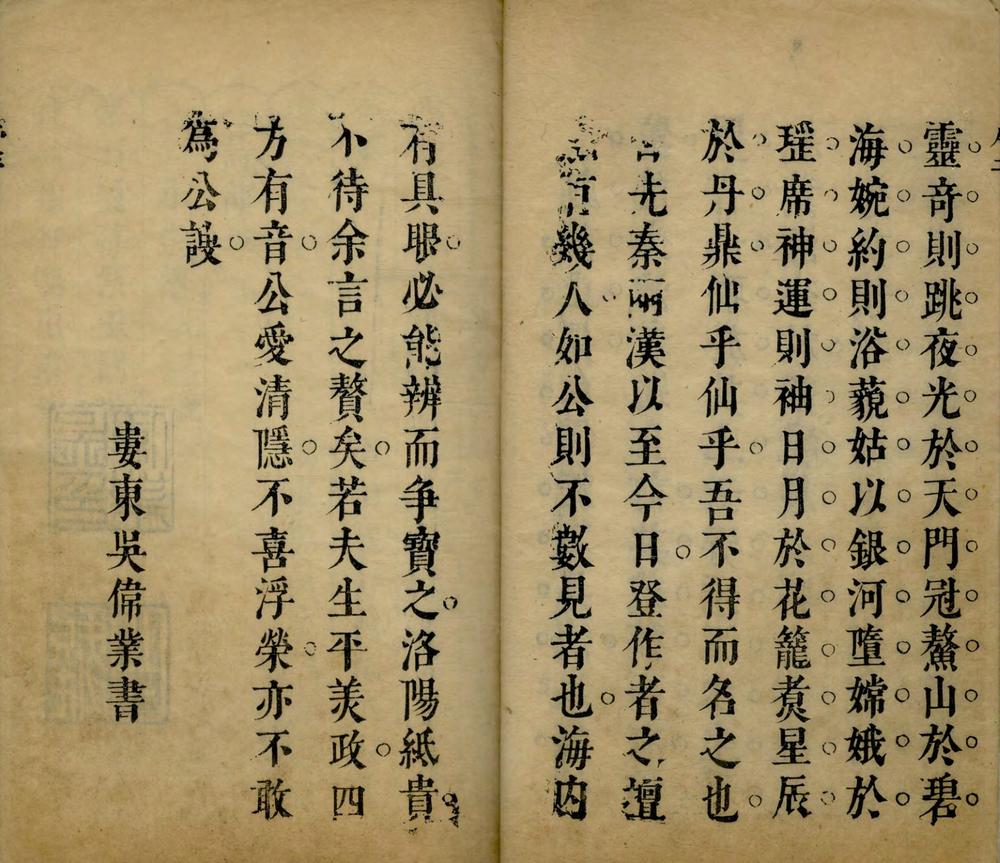 靈奇則跳夜光於天門冠鰲山於碧
海婉約則浴藐姑以銀河墮嫦娥於
瑤席神運則袖日月於花籠煑星辰
於丹鼎仙乎仙乎吾不得而名之也
先秦兩漢以至今日登作者之壇
幾人如公則不數見者也海内
有具眼必能辨而争寶之洛陽紙貴
不待余言之贅矣若夫生平美政四
方有音公愛清隱不喜浮榮亦不敢
為公謏
婁東吳偉業書